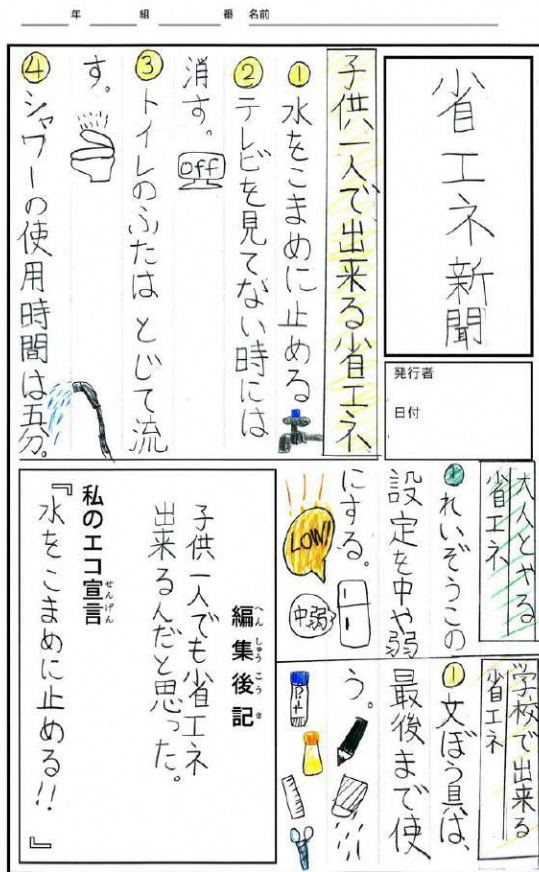 年 組 番 名前
省エネ新聞
発行者
日付
子供一人で出来る省エネ
①水をこまめに止める
②テレビを見てない時には
消す。
off
③トイレのふたはとじて流
す。
④シャワーの使用時間は五分。
大人とやる
省エネ
①れいぞうこの
設定を中や弱
にする。
LOW!
中弱
学校で出来る
省エネ
①文ぼう具は、
最後まで使
う。
編集後記
へんしゅうこうき
子供一人でも省エネ
出来るんだと思った。
私のエコ宣言
せんげん
『水をこまめに止める!!』